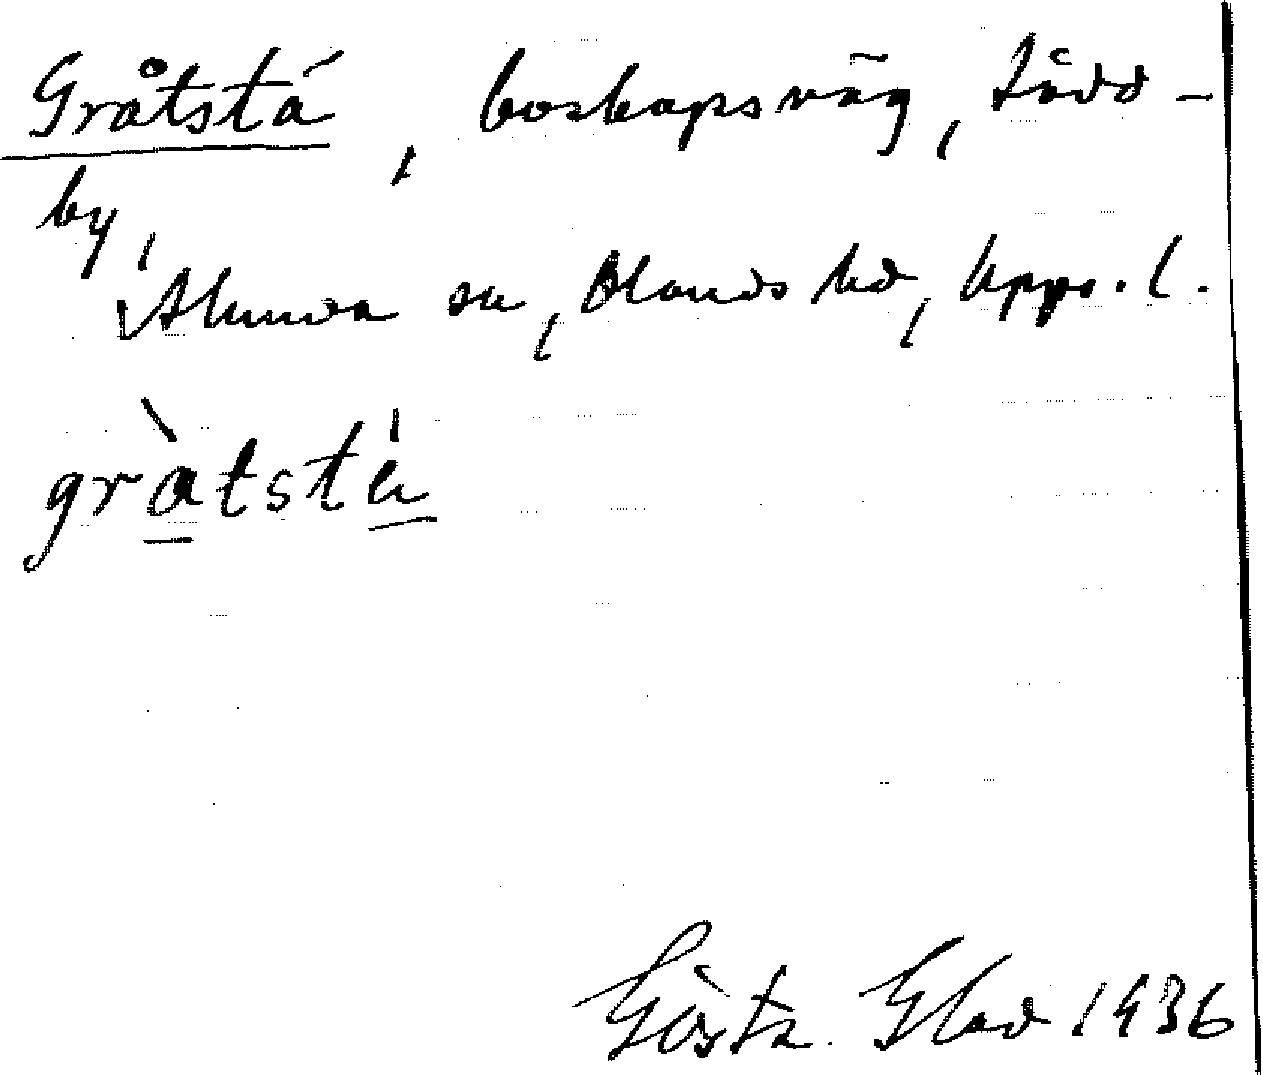 Gråtstá, boskapsväg, Lådd-
by,
Alunda sn, Olands hd, Upps. l.
gràtstá
Gösta Glad 1936